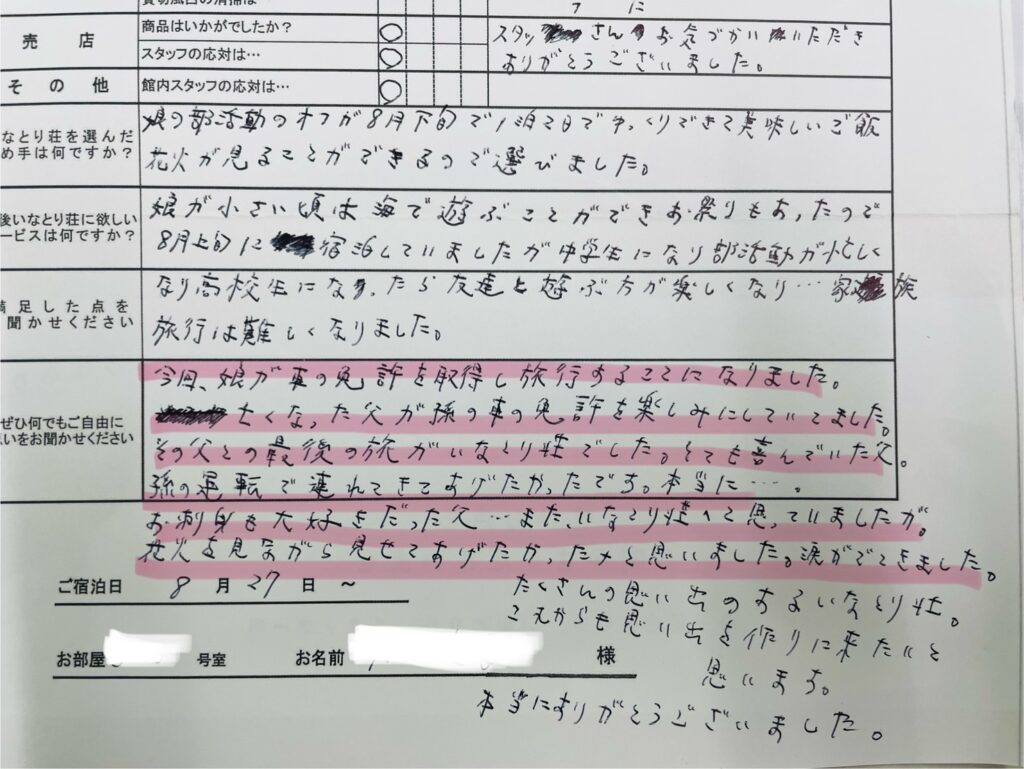 売店
商品はいかがでしたか?
スタッフの応対は…
スタッ さん お気づかい いただき
ありがとうございました。
その他
館内スタッフの応対は…
なとり荘を選んだ
め手は何ですか?
娘の部活動のオフが8月下旬で1泊2日でゆっくりできて美味しいご飯
花火が見ることができるので選びました。
後いなとり荘に欲しい
ービスは何ですか?
娘が小さい頃は海で遊ぶことができお祭りもあったので
8月上旬に 宿泊していましたが中学生になり部活動が忙しく
満足した点を
聞かせください
なり高校生になったら友達と遊ぶ方が楽しくなり…家族
旅行は難しくなりました。
ぜひ何でもご自由に
思いをお聞かせください
今回、娘が車の免許を取得し旅行することになりました。
亡くなった父が孫の車の免許を楽しみにしていてました。
その父との最後の旅がいなとり荘でした。とても喜んでいた父。
孫の運転で連れてきてあげたかったです。本当に…。
お刺身も大好きだった父…また、いなとり荘へと思っていましたが。
花火を見ながら見せてあげたかったナと思いました。涙がでてきました。
ご宿泊日 8月27日~
たくさんの思い出のあるいなとり荘。
これからも思い出を作りに来たいと
思います。
お部屋 号室 お名前 様
本当にありがとうございました。